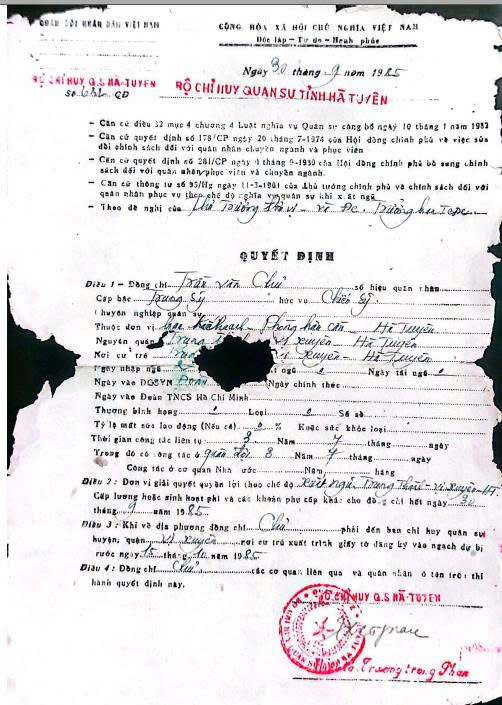 QUÂN ĐỘI NHÂN DÂN VIỆT NAM
CỘNG HÒA XÃ HỘI CHỦ NGHĨA VIỆT NAM
Độc lập - Tự do - Hạnh phúc
Ngày 30 tháng 9 năm 1985
BỘ CHỈ HUY Q.S HÀ-TUYÊN
Số QĐ
BỘ CHỈ HUY QUÂN SỰ TỈNH HÀ TUYÊN
- Căn cứ điều 32 mục 4 chương 4 Luật nghĩa vụ Quân sự công bố ngày 10 tháng 1 năm 1982
- Căn cứ quyết định số 178/CP ngày 20 tháng 7-1974 của Hội đồng chính phủ về việc sửa
đổi chính sách đối với quân nhân chuyên ngành và phục viên
- Căn cứ quyết định số 281/CP ngày 4 tháng 9-1980 của Hội đồng chính phủ bổ sung chính
sách đối với quân nhân phục viên và chuyên ngành.
- Căn cứ thông tư số 95/Hg ngày 11-3-1981 của Thủ tướng chính phủ về chính sách đối với
quân nhân phục vụ theo chế độ nghĩa vụ quân sự khi xuất ngũ
- Theo đề nghị của Thủ Trưởng Đơn vị - Trưởng ban
QUYẾT ĐỊNH
Điều 1 - Đồng chí Trần Văn Chủ số hiệu quân nhân
Cấp bậc Trung Sỹ chức vụ Chiến Sỹ
Chuyên nghiệp quân sự
Thuộc đơn vị Phòng hậu cần - Hà Tuyên
Nguyên quán Trung Vị Xuyên - Hà Tuyên
Nơi cư trú Vị Xuyên - Hà Tuyên
Ngày nhập ngũ ngũ Ngày tái ngũ
Ngày vào ĐCSVN Đoàn Ngày chính thức
Ngày vào Đoàn TNCS Hồ Chí Minh
Thương binh hạng Loại Số sổ
Tỷ lệ mất sức lao động (Nếu có) % Hoặc sức khỏe loại
Thời gian công tác liên tục 3 Năm 7 tháng ngày
Trong đó có công tác ở quân đội 3 Năm 7 tháng ngày
Công tác ở cơ quan Nhà nước Năm tháng
Điều 2 : Đơn vị giải quyết quyền lợi theo chế độ Xuất ngũ Trung Thành - Vị Xuyên - HT
Cấp lương hoặc sinh hoạt phí và các khoản phụ cấp khác cho đồng chí hết ngày 30
tháng 9 năm 1985
Điều 3 : Khi về địa phương đồng chí Chủ phải đến ban chỉ huy quân sự
huyện, quận Vị Xuyên nơi cư trú xuất trình giấy tờ đăng ký vào ngạch dự bị
trước ngày 15 tháng 10 năm 1985
Điều 4 : Đồng chí Chủ các cơ quan liên quan và quân nhân có tên trên thi
hành quyết định này.
BỘ CHỈ HUY Q.S HÀ-TUYÊN
Trương trọng Phan